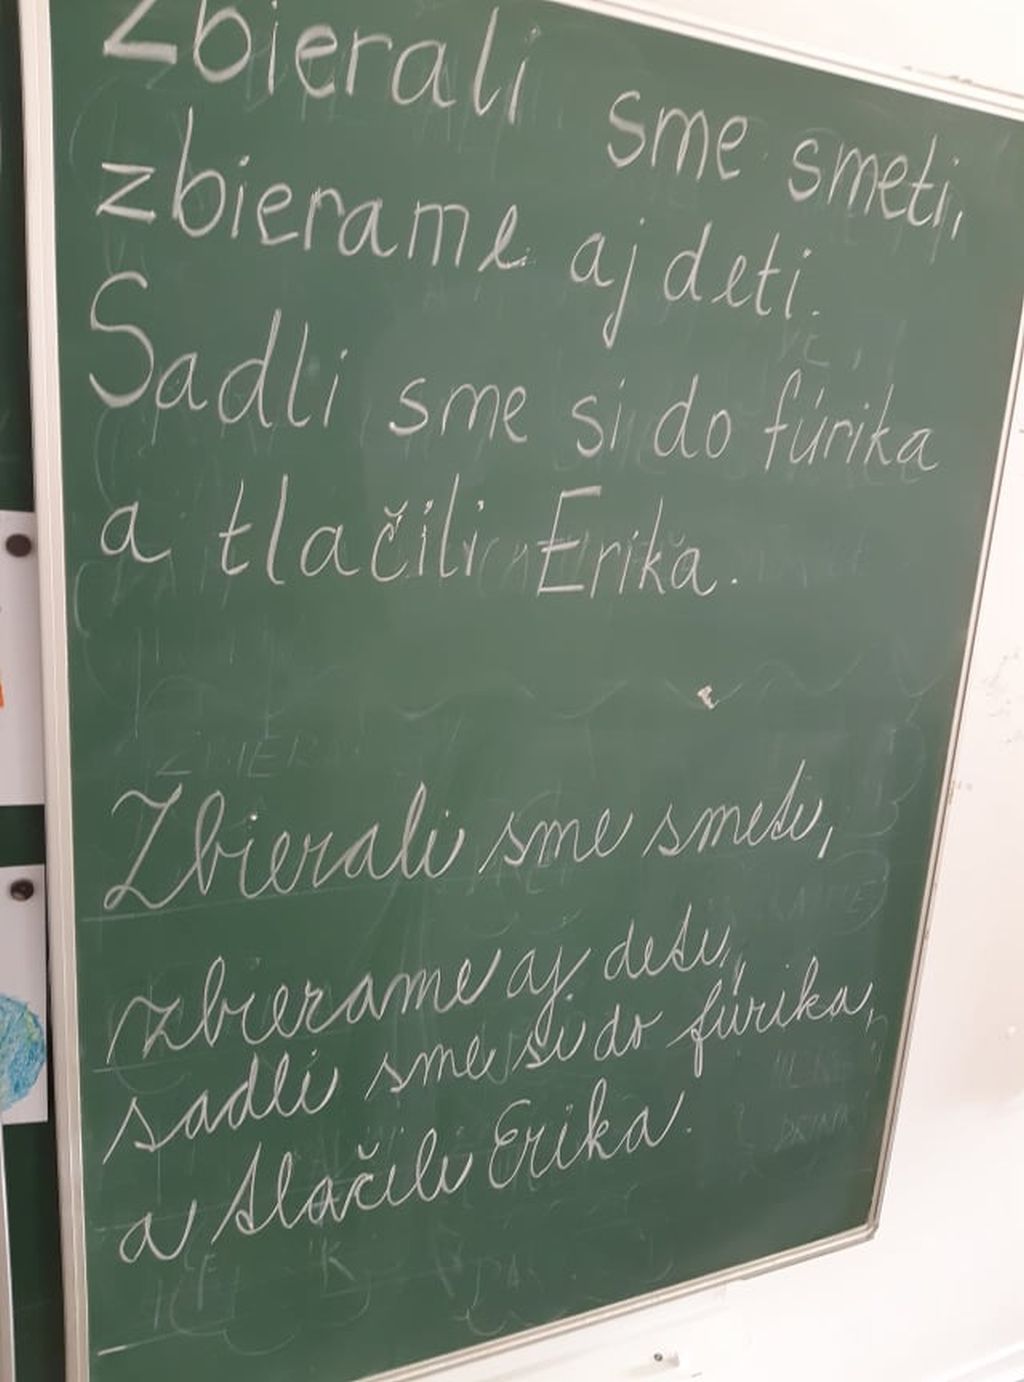 Zbierali sme smeti,
zbierame aj deti.
Sadli sme si do fúrika
a tlačili Erika.
Zbierali sme smeti,
zbierame aj deti,
sadli sme si do fúrika,
a tlačili Erika.